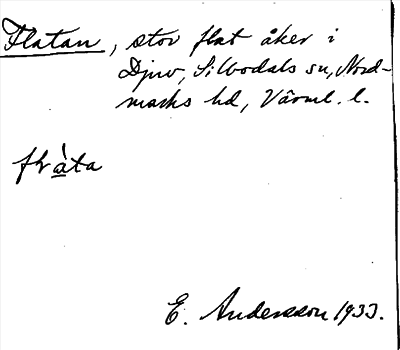 Flatan, stor flat åker i
Djuv, Silbodals sn, Nord-
marks hd, Värml. l.
E. Andersson 1933.